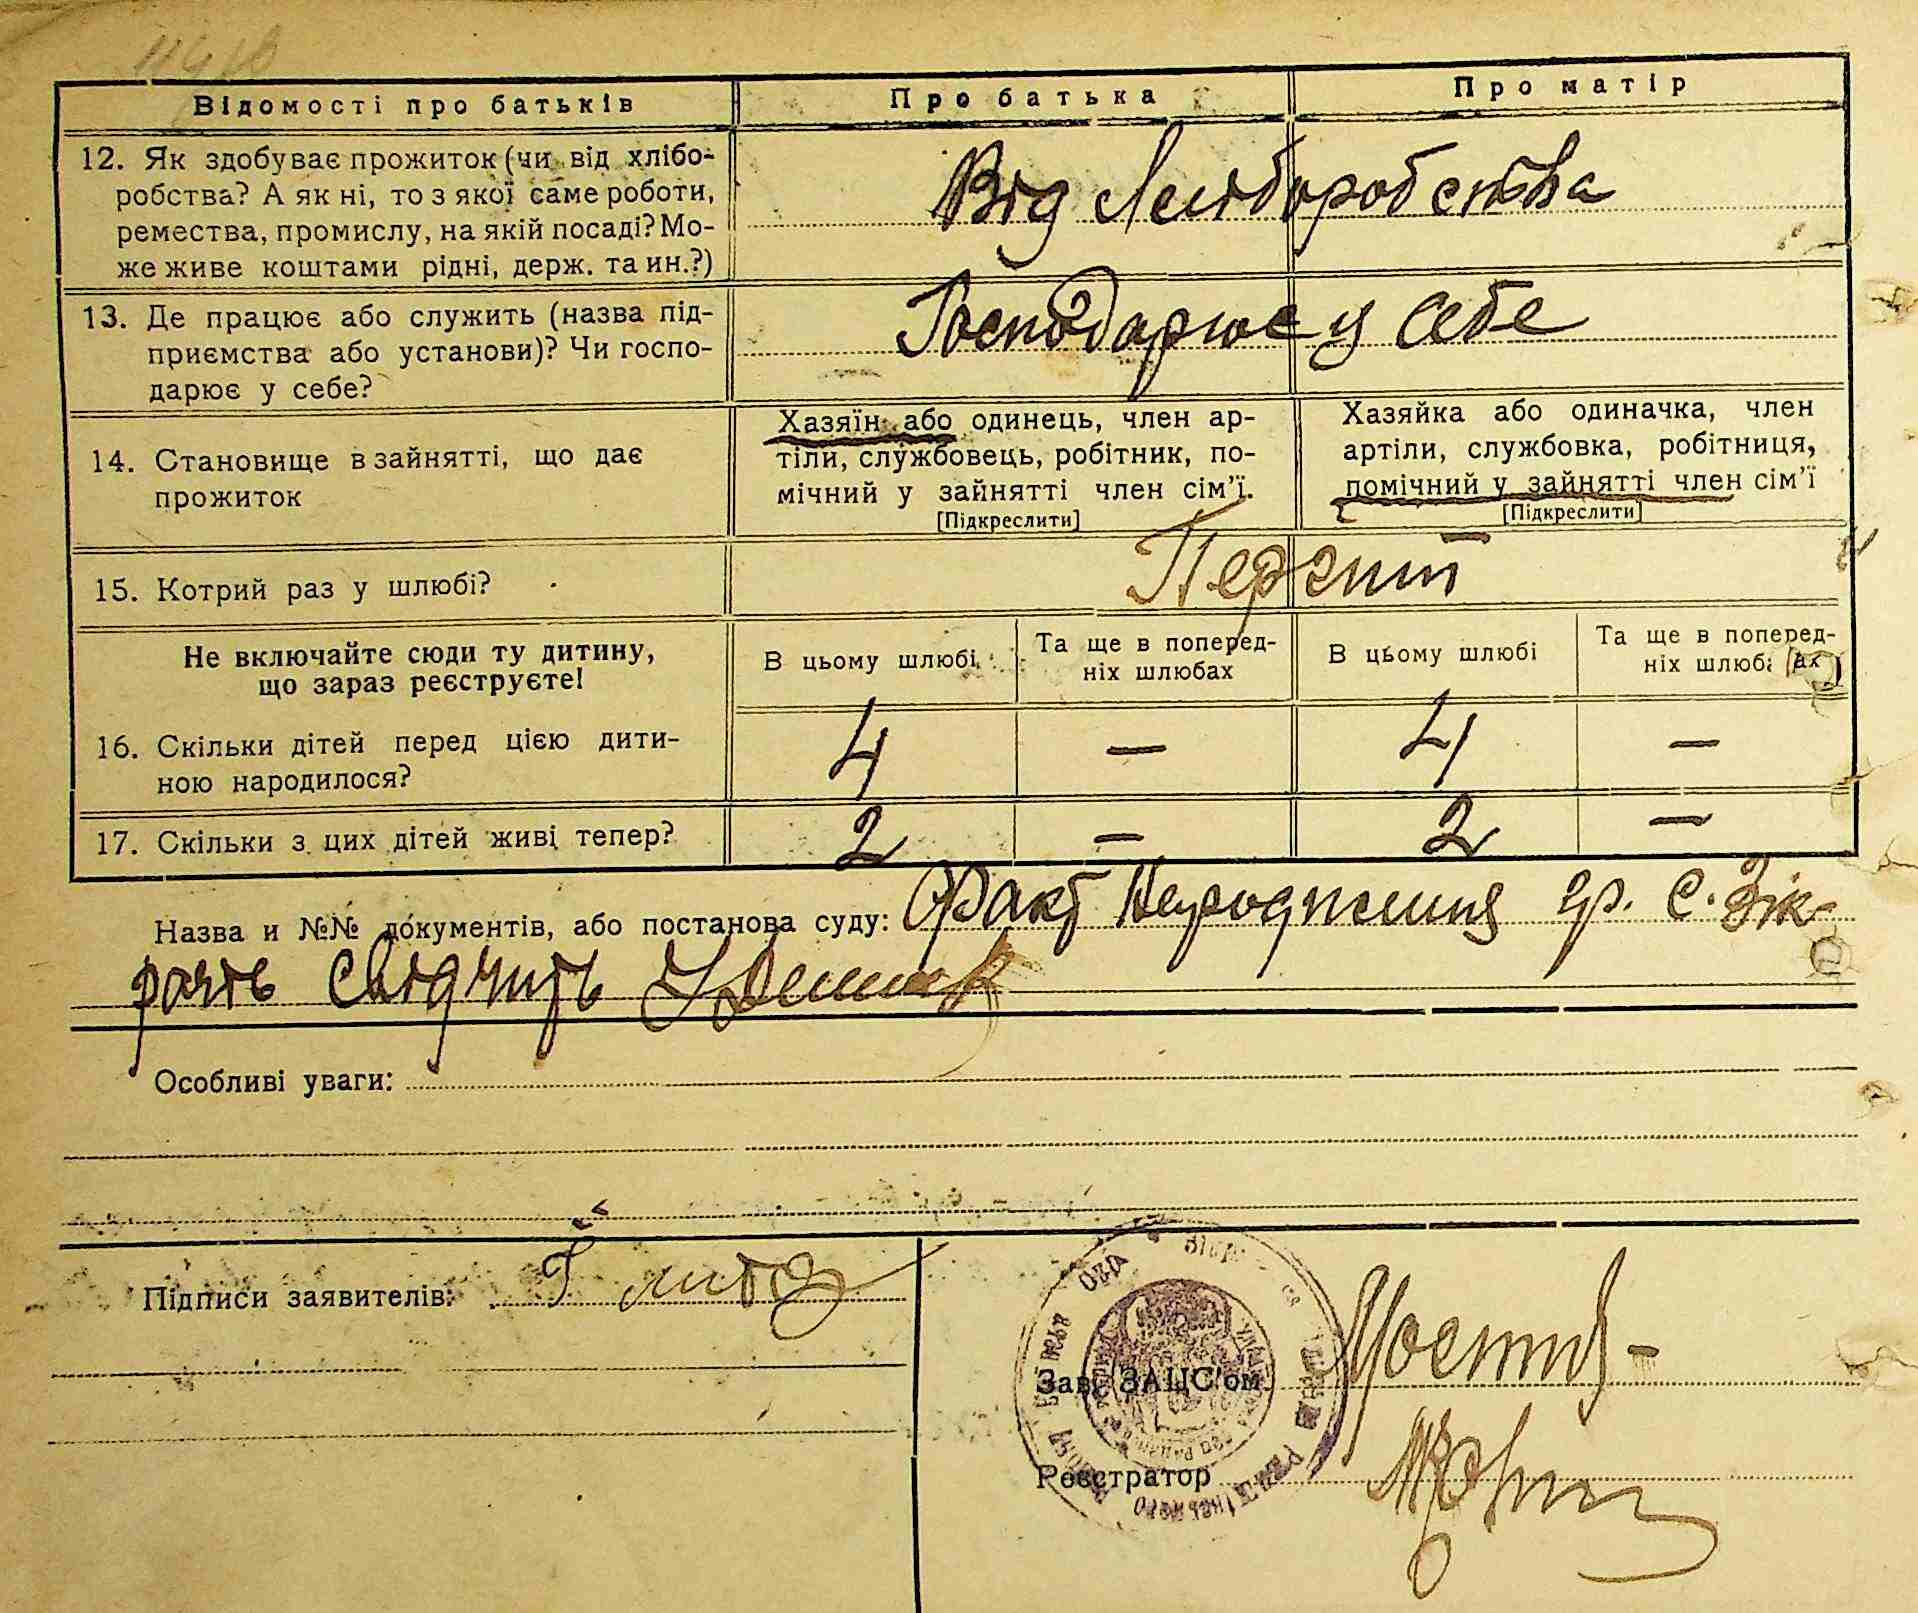 Відомості про батьків
Про батька
Про матір
12. Як здобуває прожиток (чи від хлібо-
робства? А як ні, то з якої саме роботи,
ремества, промислу, на якій посаді? Мо-
же живе коштами рідні, держ. та ин.?)
Від хліборобства
13. Де працює або служить (назва під-
приємства або установи)? Чи госпо-
дарює у себе?
Господарює у себе
14. Становище в зайнятті, що дає
прожиток
Хазяїн або одинець, член ар-
тіли, службовець, робітник, по-
мічний у зайнятті член сім'ї.
[Підкреслити]
Хазяйка або одиначка, член
артіли, службовка, робітниця,
помічний у зайнятті член сім'ї
[Підкреслити]
15. Котрий раз у шлюбі?
Перший
Не включайте сюди ту дитину,
що зараз реєструєте!
В цьому шлюбі
Та ще в поперед-
ніх шлюбах
В цьому шлюбі
Та ще в поперед-
ніх шлюбах
16. Скільки дітей перед цією дити-
ною народилося?
4 — 4 —
17. Скільки з цих дітей живі тепер?
2 — 2 —
Назва и №№ документів, або постанова суду: Факт народження гр. с. Зік-
рать свідчить
Особливі уваги:
Підписи заявителів:
Зав. ЗАЦС'ом
Реєстратор